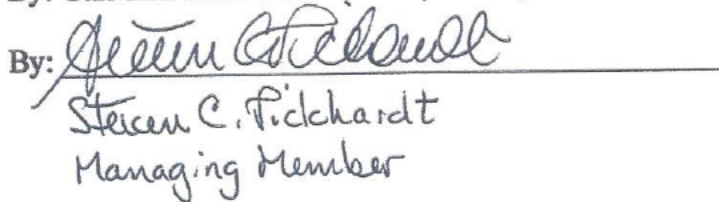 By:
By: Steven C. Pickhardt
Steven C. Pickhardt
Managing Member